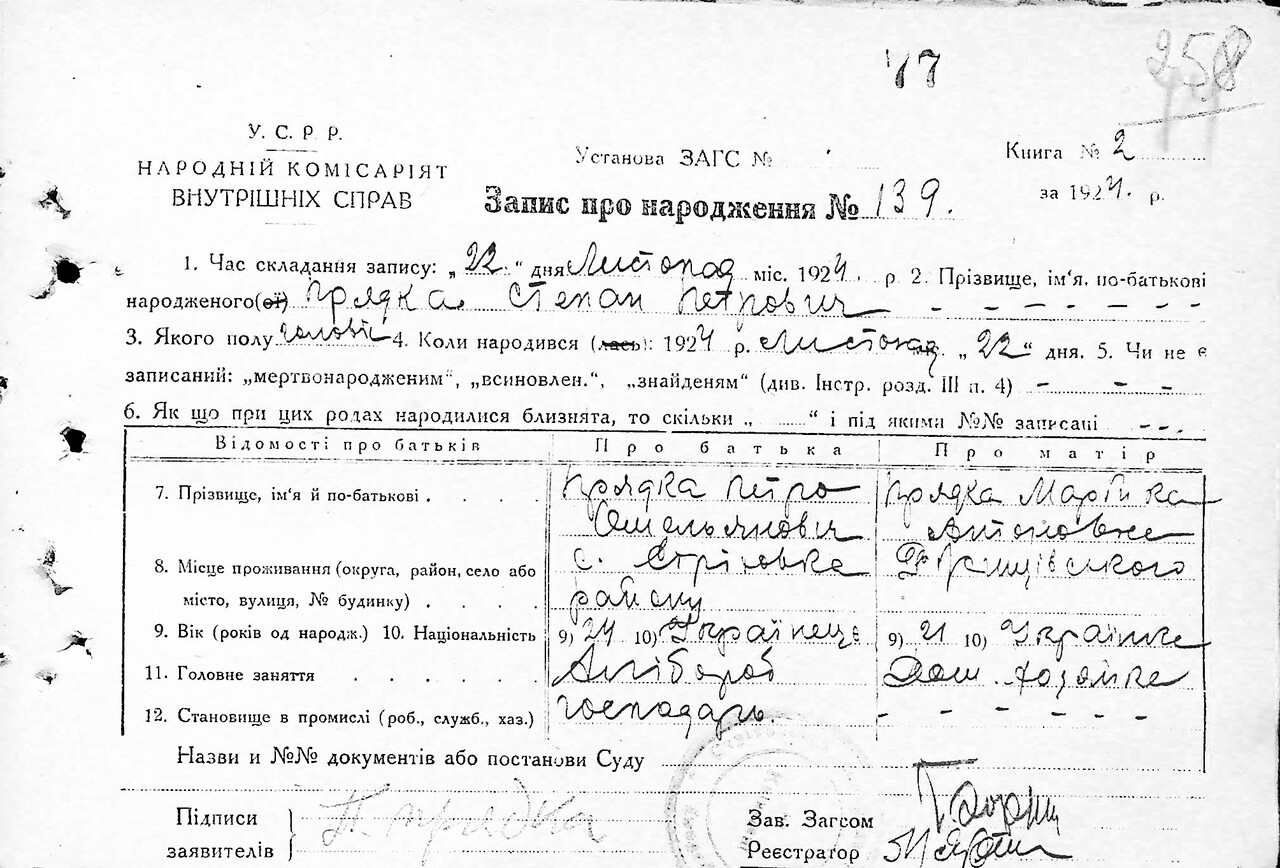 77
258
У. С. Р. Р.
НАРОДНІЙ КОМІСАРІЯТ
ВНУТРІШНІХ СПРАВ
Установа ЗАГС №
Книга № 2
за 1924 р.
Запис про народження № 139.
1. Час складання запису: „22“ дня Листопад міс. 1924 р 2. Прізвище, ім'я, по-батькові
народженого(ої) Прядка Степан Петрович – – – – – –
3. Якого полу чоловіч 4. Коли народився (лась): 1924 р. Листопад „22“ дня. 5. Чи не є
записаний: „мертвонародженим“, „всиновлен.“, „знайденям“ (див. Інстр. розд. III п. 4) – – –
6. Як що при цих родах народилися близнята, то скільки „ ...... “ і під якими №№ записані – – –
Відомості про батьків Про батька Про матір
7. Прізвище, ім'я й по-батькові . . . . Прядка Петро Прядка Марійка
Омельянович Антоновне
8. Місце проживання (округа, район, село або с. Стріховке
місто, вулиця, № будинку) . . . . району
9. Вік (років од народж.) 10. Національність 9) 24 10) Українець 9) 21 10) Українке
11. Головне заняття . . . . . . Хлібороб Дом. хозяйке
12. Становище в промислі (роб., служб., хаз.) господарь. – – – – – –
Назви и №№ документів або постанови Суду
Підписи
заявителів
П прядка
Зав. Загсом
Реєстратор